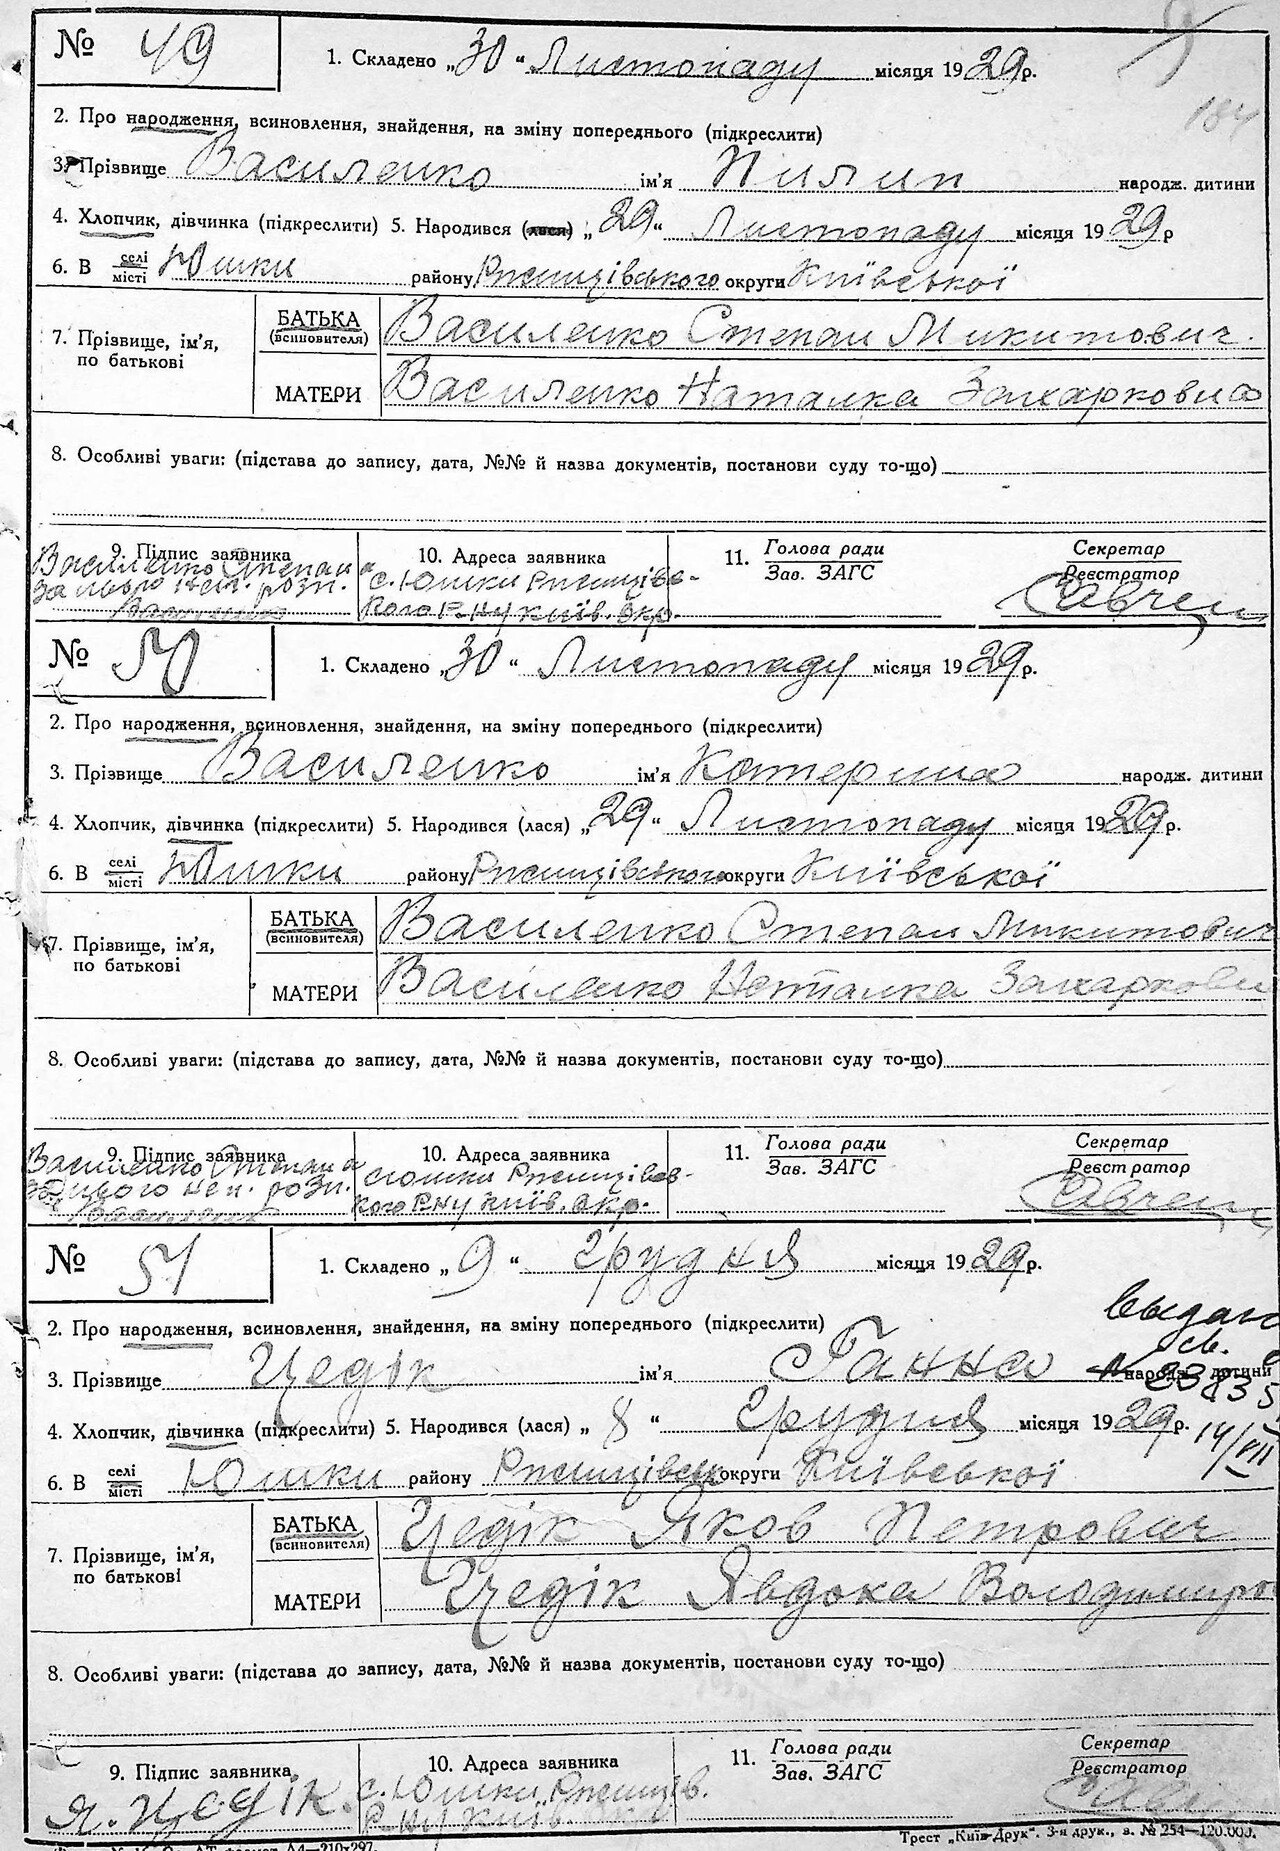 № 49
1. Складено „30“ Листопаду місяця 1929 р.
184
2. Про народження, всиновлення, знайдення, на зміну попереднього (підкреслити)
3. Прізвище Василенко ім'я Пилип народж. дитини
4. Хлопчик, дівчинка (підкреслити) 5. Народився (лася) „29“ Листопаду місяця 1929 р
6. В селі/місті Юшки району Ржищівського округи Київської
7. Прізвище, ім'я, по батькові
БАТЬКА (всиновителя) Василенко Степан Микитович.
МАТЕРИ Василенко Наталка Захарковна
8. Особливі уваги: (підстава до запису, дата, №№ й назва документів, постанови суду то-що)
9. Підпис заявника
Василенко Степана
за нього неп. розп.
Василенко
10. Адреса заявника
с. Юшки Ржищівс-
кого Р-ну Київ. Окр.
11. Голова ради
Зав. ЗАГС
Секретар
Реєстратор
№ 50
1. Складено „30“ Листопаду місяця 1929 р.
2. Про народження, всиновлення, знайдення, на зміну попереднього (підкреслити)
3. Прізвище Василенко ім'я Катерина народж. дитини
4. Хлопчик, дівчинка (підкреслити) 5. Народився (лася) „29“ Листопаду місяця 1929 р.
6. В селі/місті Юшки району Ржищівського округи Київської
7. Прізвище, ім'я, по батькові
БАТЬКА (всиновителя) Василенко Степан Микитович
МАТЕРИ Василенко Наталка Захаркови
8. Особливі уваги: (підстава до запису, дата, №№ й назва документів, постанови суду то-що)
9. Підпис заявника
Василенко Степана
за нього неп. розп.
Василенко
10. Адреса заявника
с Юшки Ржищівс-
кого Р-ну Київ. Окр.
11. Голова ради
Зав. ЗАГС
Секретар
Реєстратор
№ 51
1. Складено „9“ Грудня місяця 1929 р.
2. Про народження, всиновлення, знайдення, на зміну попереднього (підкреслити)
выдано
св.
3. Прізвище Цедік ім'я Ганна народж. дитини
4. Хлопчик, дівчинка (підкреслити) 5. Народився (лася) „8“ Грудня місяця 1929 р.
14/VII
6. В селі/місті Юшки району Ржищівськ округи Київської
7. Прізвище, ім'я, по батькові
БАТЬКА (всиновителя) Цедік Яков Петрович
МАТЕРИ Цедік Явдоха Володимиров
8. Особливі уваги: (підстава до запису, дата, №№ й назва документів, постанови суду то-що)
9. Підпис заявника
Я. Цедік.
10. Адреса заявника
с. Юшки Ржищів.
Р-ну Київ. Окр
11. Голова ради
Зав. ЗАГС
Секретар
Реєстратор
Трест „Київ-Друк“. 3-я друк., з. № 254—120.000.